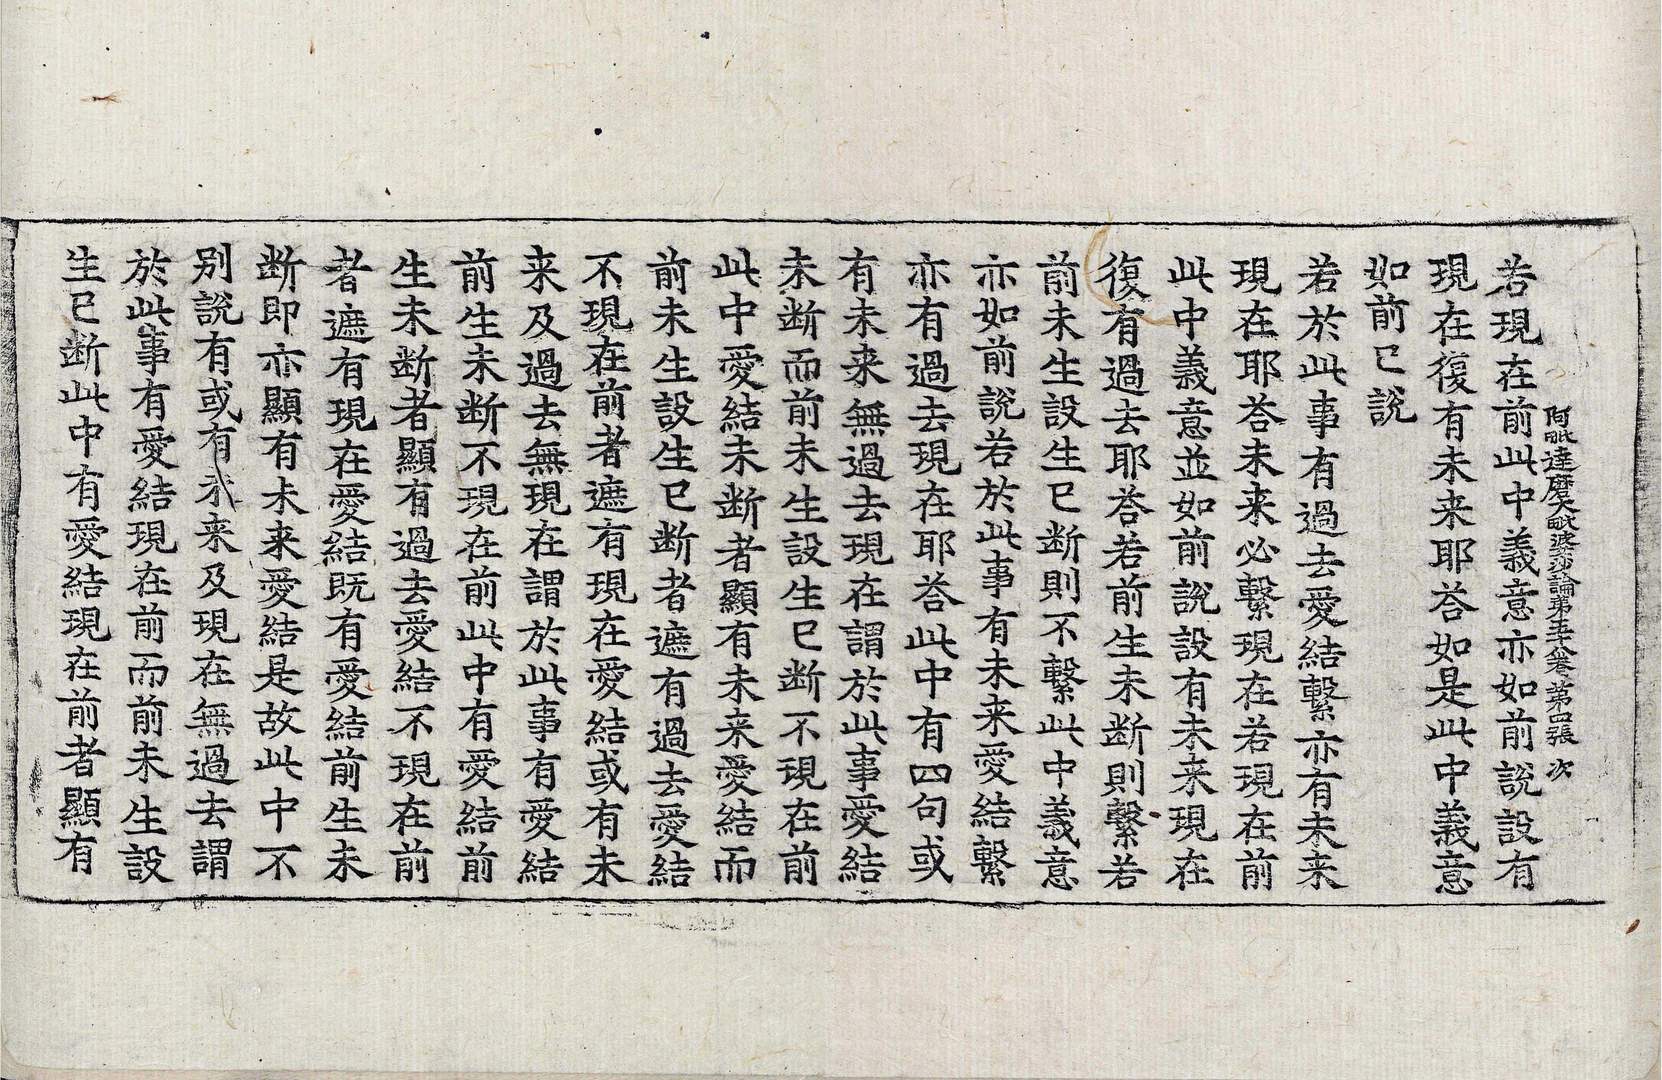 阿毗達磨大毗婆沙論苐五十八卷 苐四張 次
若現在前此中義意亦如前說設有
現在復有未来耶荅如是此中義意
如前已說
若於此事有過去愛結繫亦有未来
現在耶荅未来必繫現在若現在前
此中義意並如前說設有未来現在
復有過去耶荅若前生未断則繫若
前未生設生已断則不繫此中義意
亦如前說若於此事有未来愛結繫
亦有過去現在耶荅此中有四句或
有未来無過去現在謂於此事愛結
未断而前未生設生已断不現在前
此中愛結未断者顯有未来愛結而
前未生設生已断者遮有過去愛結
不現在前者遮有現在愛結或有未
来及過去無現在謂於此事有愛結
前生未断不現在前此中有愛結前
生未断者顯有過去愛結不現在前
者遮有現在愛結既有愛結前生未
断即亦顯有未来愛結是故此中不
別說有或有未来及現在無過去謂
於此事有愛結現在前而前未生設
生已断此中有愛結現在前者顯有